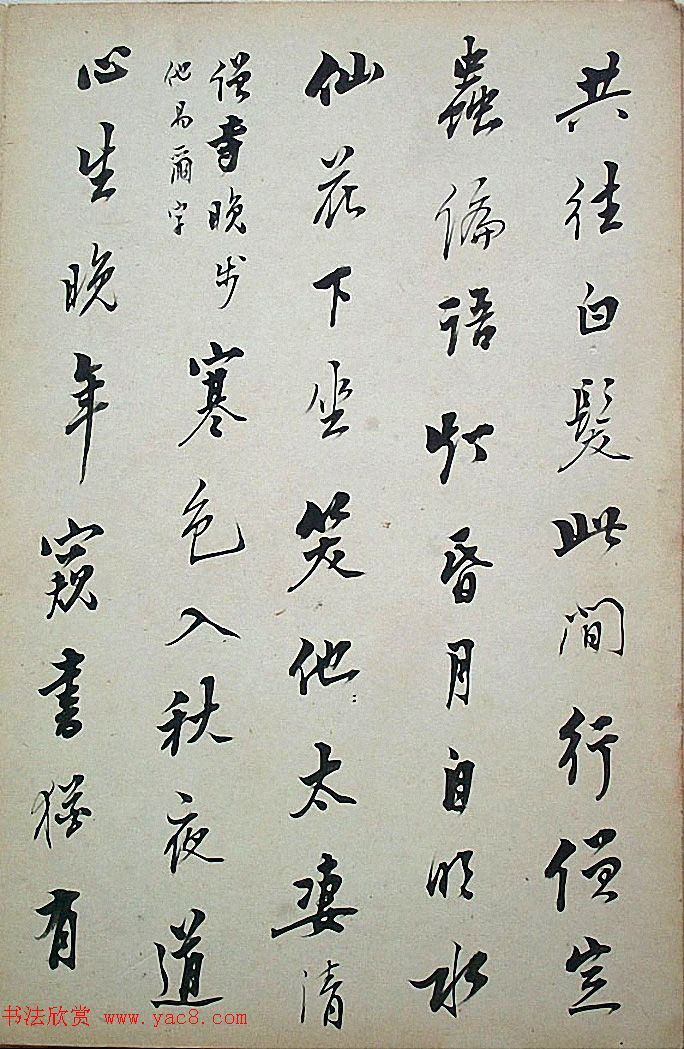 共往白髮此間行僧定
蟲偏語灯昏月自明水
仙花下坐笑他太凄清
僧寺晚步
他易爾字
寒色入秋夜道
心生晚年窺書猶有
书法欣赏 www.yac8.com